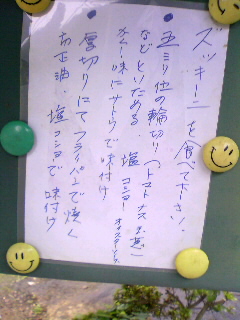 ズッキーニを食って下さい!
五ミリ位の輪切り(トマトナスネギ)
などといためる 塩 コショー
オイスターソース
カレー味にサトウで味付け
厚切りにてフライパンで焼く
お正油、塩コショーで味付け